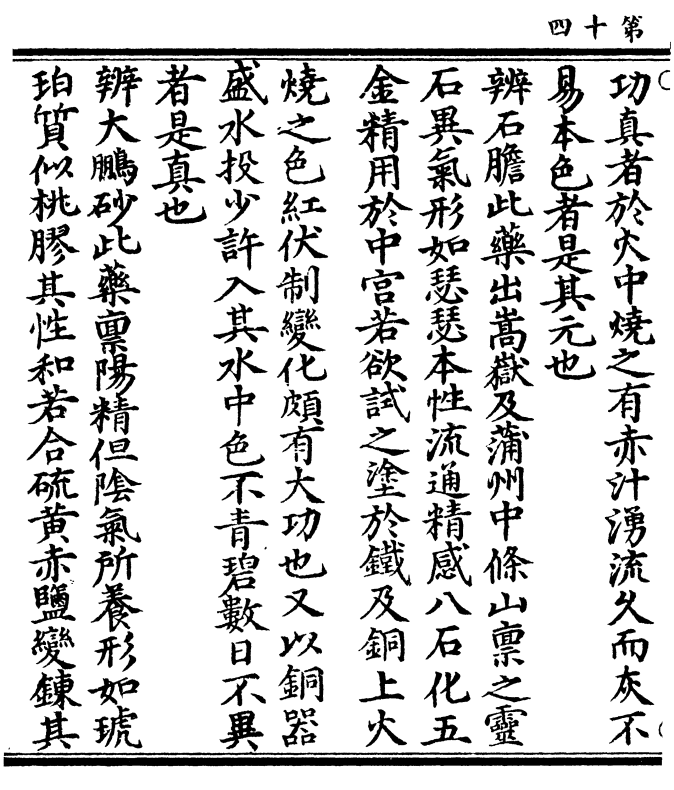 第十四
功真者於火中燒之有赤汁湧流久而灰不
易本色者是其元也
辨石膽此藥出嵩嶽及蒲州中條山禀之靈
石異氣形如瑟瑟本性流通精感八石化五
金精用於中宮若欲試之塗於鐵及銅上火
燒之色紅伏制變化頗有大功也又以銅器
盛水投少許入其水中色不青碧數日不異
者是真也
辨大鵬砂此藥禀陽精但陰氣所養形如琥
珀質似桃膠其性和若合硫黄赤鹽變鍊其